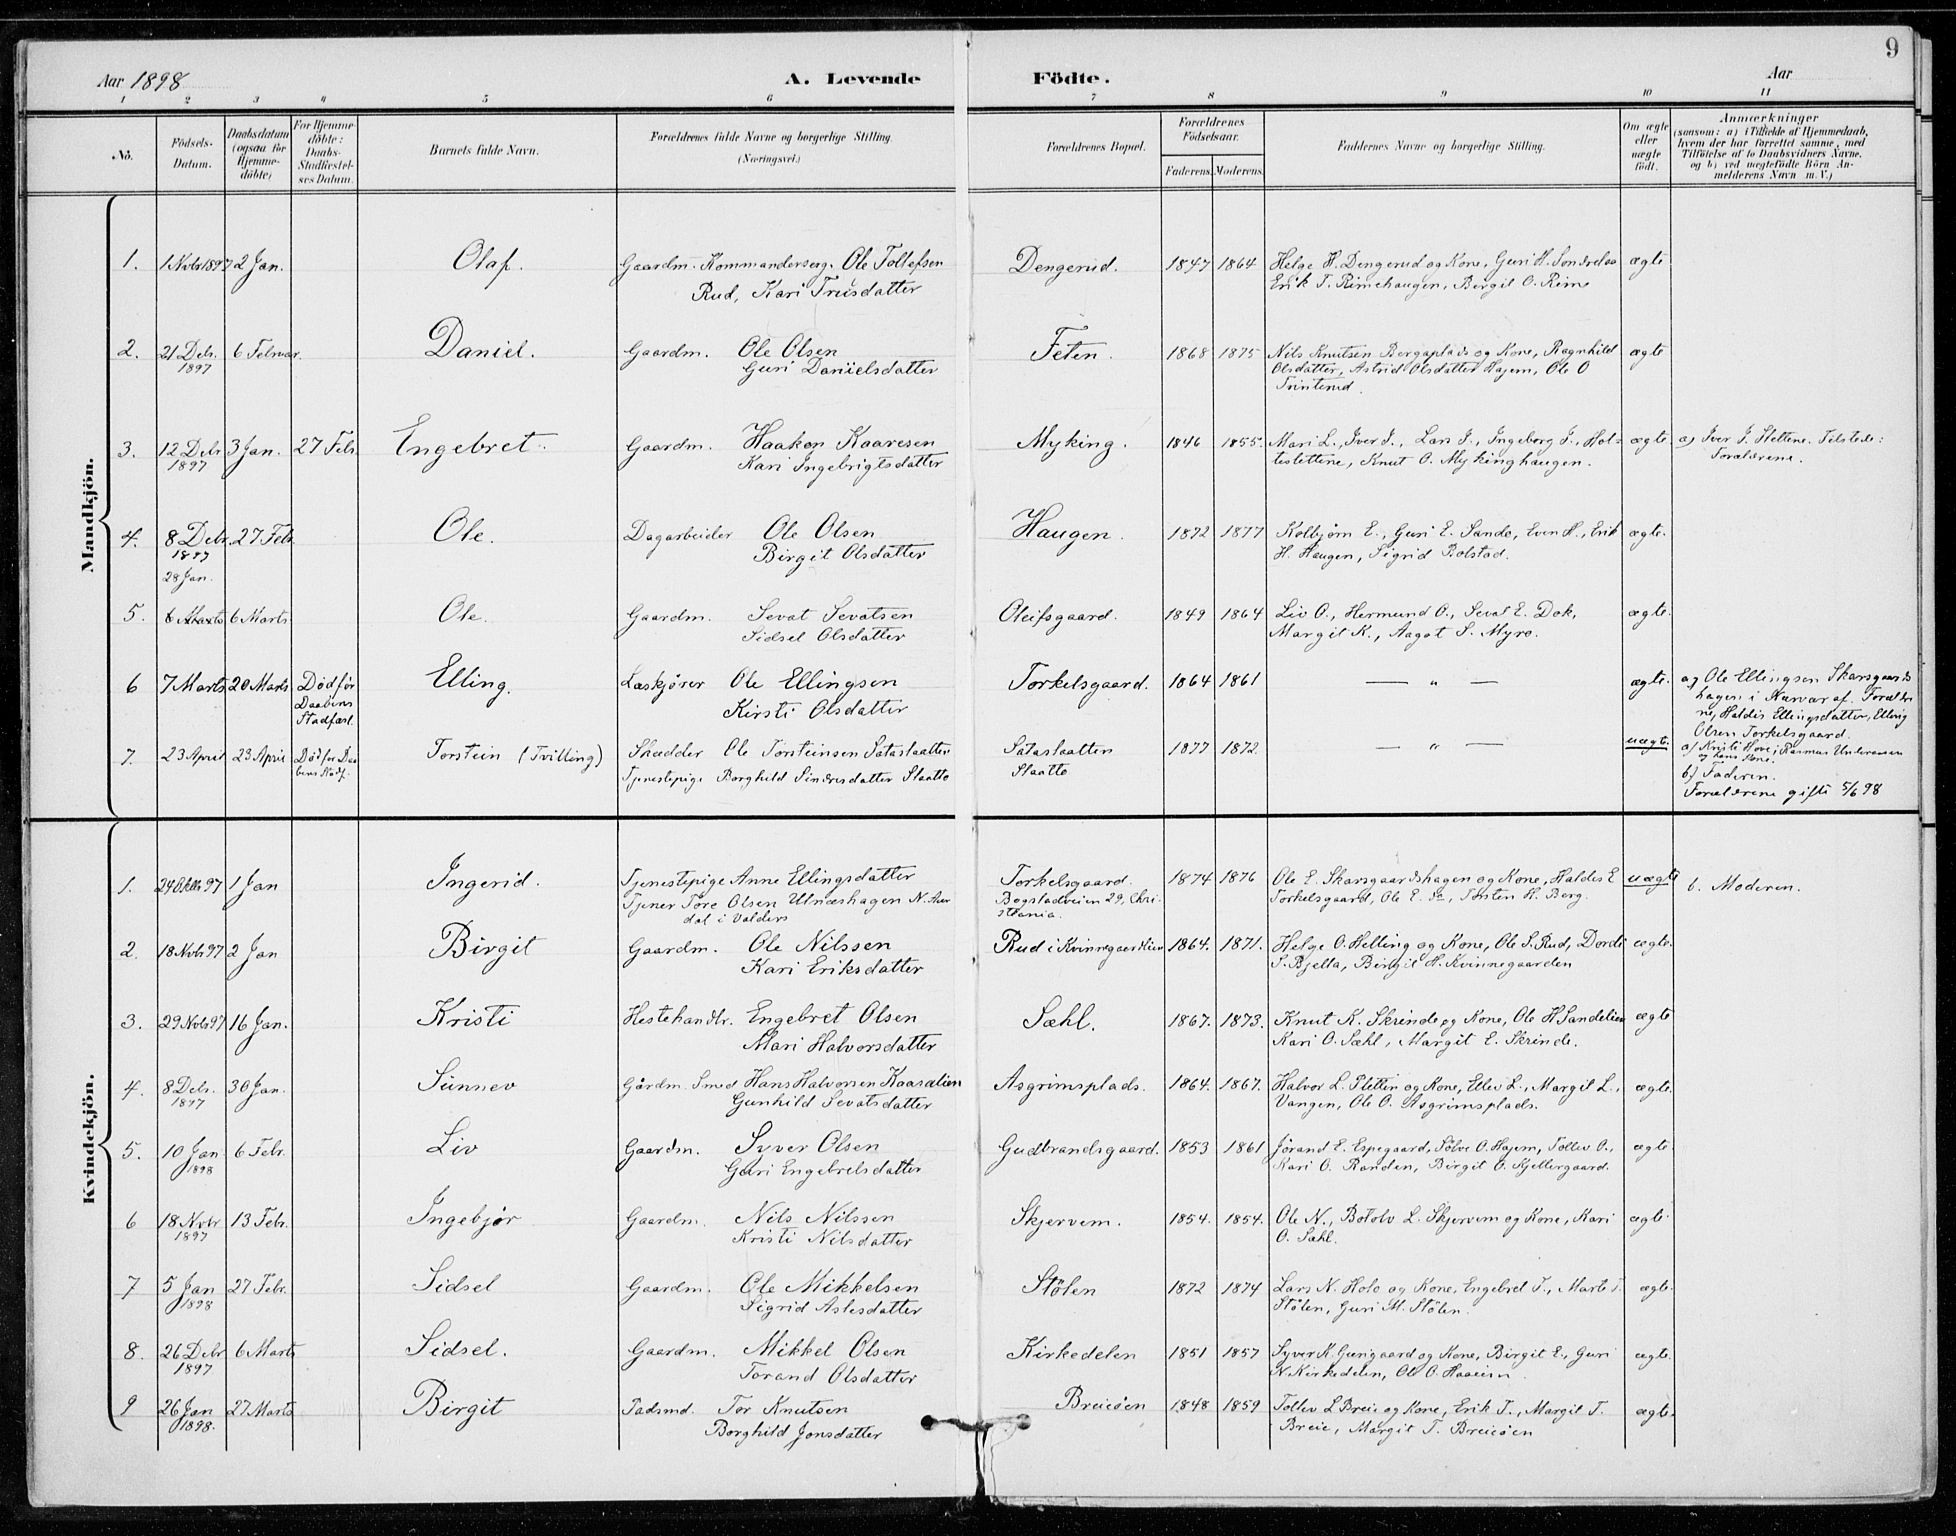 9
Aar 1898 A. Levende Födte. Aar
1 2 3 4 5 6 7 8 9 10 11
No.
Födsels-Datum.
Daabsdatum (ogsaa for Hjemme-döbte)
For Hjemme-döbte: Daabs-Stadfæstel-ses Datum.
Barnets fulde Navn.
Forældrenes fulde Navne og borgerlige Stilling. (Næringsvei.)
Forældrenes Bopæl.
Forældrenes Födselsaar.
Faderens. Moderens.
Faddernes Navne og borgerlige Stilling.
Om ægte eller uægte födt.
Anmærkninger
(saasom: a) i Tilfælde af Hjemmedaab, hvem der har forrettet samme, med Tilföielse af to Daabsvidners Navne, og b) ved uægtefödte Börn An-melderens Navn m. V.)
Mandkjön.
1. 1 Nvbr 1897 2 Jan. Olaf. Gaardm. Kommandersерg. Ole Tollefsen Dengerud. 1847 1864 Helge H. Dengerud og Kone, Guri H. Sondrelaa ægte
Rud, Kari Truisdatter Erik T. Rimehaugen, Birgit O. Rime
2. 21 Debr. 6 Februar. Daniel. Gaardm. Ole Olsen Feten. 1868 1875 Nils Knutsen Bergaplads og Kone, Ragnhild ægte
1897 Guri Danielsdatter Olsdatter, Astrid Olsdatter Hagem, Ole O
Trinterud.
3. 12 Debr 3 Jan. 27 Febr Engebret. Gaardm. Haakon Kaaresen Myking. 1846 1855. Mari L., Iver I., Lars I., Ingeborg I., Hol- ægte a) Iver I. Slettene. Tilstede:
1897 Kari Ingebrigtsdatter teslettene, Knut O. Mykinghaugen. Forældrene.
4. 8 Debr. 27 Febr Ole. Dagarbeider Ole Olsen Haugen. 1872 1877 Kolbjørn E., Guri E. Sando, Even H., Erik ægte.
1897 Birgit Olsdatter H. Haugen, Sigrid Bolstad.
28 Jan.
5. 6 Marts 6 Marts. Ole. Gaardm. Sevat Sevatsen Oleifsgaard. 1849 1864 Liv O., Hermund O., Sevat E. Dok, ægte.
Sidsel Olsdatter Margit K., Aagot S. Myro.
6 7 Marts 20 Marts Død før Elling. Læskjører Ole Ellingsen Torkelsgaard. 1864 1861 — " — ægte. a) Ole Ellingsen Skarsgaards
Daabens Kirsti Olsdatter hagen i Nærvær af. Foræld
Stadfæst. ne, Haldis Ellingsdatter, Elling
Olsen Torkelsgaard.
7. 23 April 23 April Død før Daa Torstein (Tvilling) Skrædder Ole Torsteinsen Sataslaatten Sataslaatten 1877 1872. — " — uægte. a) Kristi Hove, Rasmus
bens Stadf. Tjenestepige Borghild Sindresdatter Slaatto Slaatto og hans Kone.
b) Faderen.
Forældrene gifte 5/6 98
Kvindekjön.
1. 24 Oktbr 97 1 Jan Ingerid. Tjenestepige Anne Ellingsdatter Torkelsgaard. 1874 1876 Ole E. Skarsgaardshagen og Kone, Haldis E uægte b. Moderen.
Tjener Tore Olsen Ulnæshagen N. Aur Bogstadveien 29, Chri- Torkelsgaard, Ole E. Sm, Torsten H. Berg.
dal i Valders stiania.
2. 18 Nvbr 97 2 Jan Birgit Gaardm. Ole Nilssen Rud i Kvinnegaardlien 1864. 1871. Helge O. Helling og Kone, Ole S. Rud, Dordi ægte.
Kari Eriksdatter S. Bjella, Birgit H. Kvinnegaarden
3. 29 Nvbr 97 16 Jan. Kristi Hestehandlr. Engebret Olsen Sæhl. 1867. 1873. Knut K. Skrinde og Kone, Ole H Sandelien ægte
Mari Halvorsdatter Kari O. Sæhl, Margit E. Skrinde.
4. 8 Debr. 30 Jan. Sünnev Gårdm. Smed Hans Halvorsen Kaasalien Asgrimsplads. 1864. 1867. Halvor L. Sletten og Kone, Ellev L., Margit L., ægte.
1897 Gunhild Sevatsdatter Vangen, Ole O. Asgrimsplads.
5. 10 Jan 6 Febr. Liv Gaardm. Syver Olsen Gudbrandsgaard. 1853 1861 Jørand E. Espegaard, Sølve O. Hagem, Tollev O., ægte.
1898 Guri Engebretsdatter Kari O. Randen, Birgit O. Kjellergaard.
6 18 Nvbr 13 Febr. Ingebjør Gaardm. Nils Nilssen Skjervem. 1854. 1854. Ole N., Botolv L. Skjervem og Kone, Kari ægte.
1897 Kristi Nilsdatter O. Sæhl.
7 5 Jan 27 Febr. Sidsel Gaardm. Ole Mikkelsen Stølen 1872 1874 Lars N. Holo og Kone, Engebret T., Marte T. ægte.
1898 Sigrid Aslesdatter Stølen, Guri M. Stølen.
8. 26 Debr 6 Marts Sidsel. Gaardm. Mikkel Olsen Kirkedelen 1851 1857 Syver K Gurigaard og Kone, Birgit E., Guri ægte.
1897 Torand Olsdatter N. Kirkedelen, Ole O. Haaheim
9 26 Jan 27 Marts Birgit Tor Knutsen Breieøen 1848 1859 Tollev L Breie og Kone, Erik T., Margit T. ægte.
1898. Borghild Jonsdatter Breie, Margit T. Breieøen